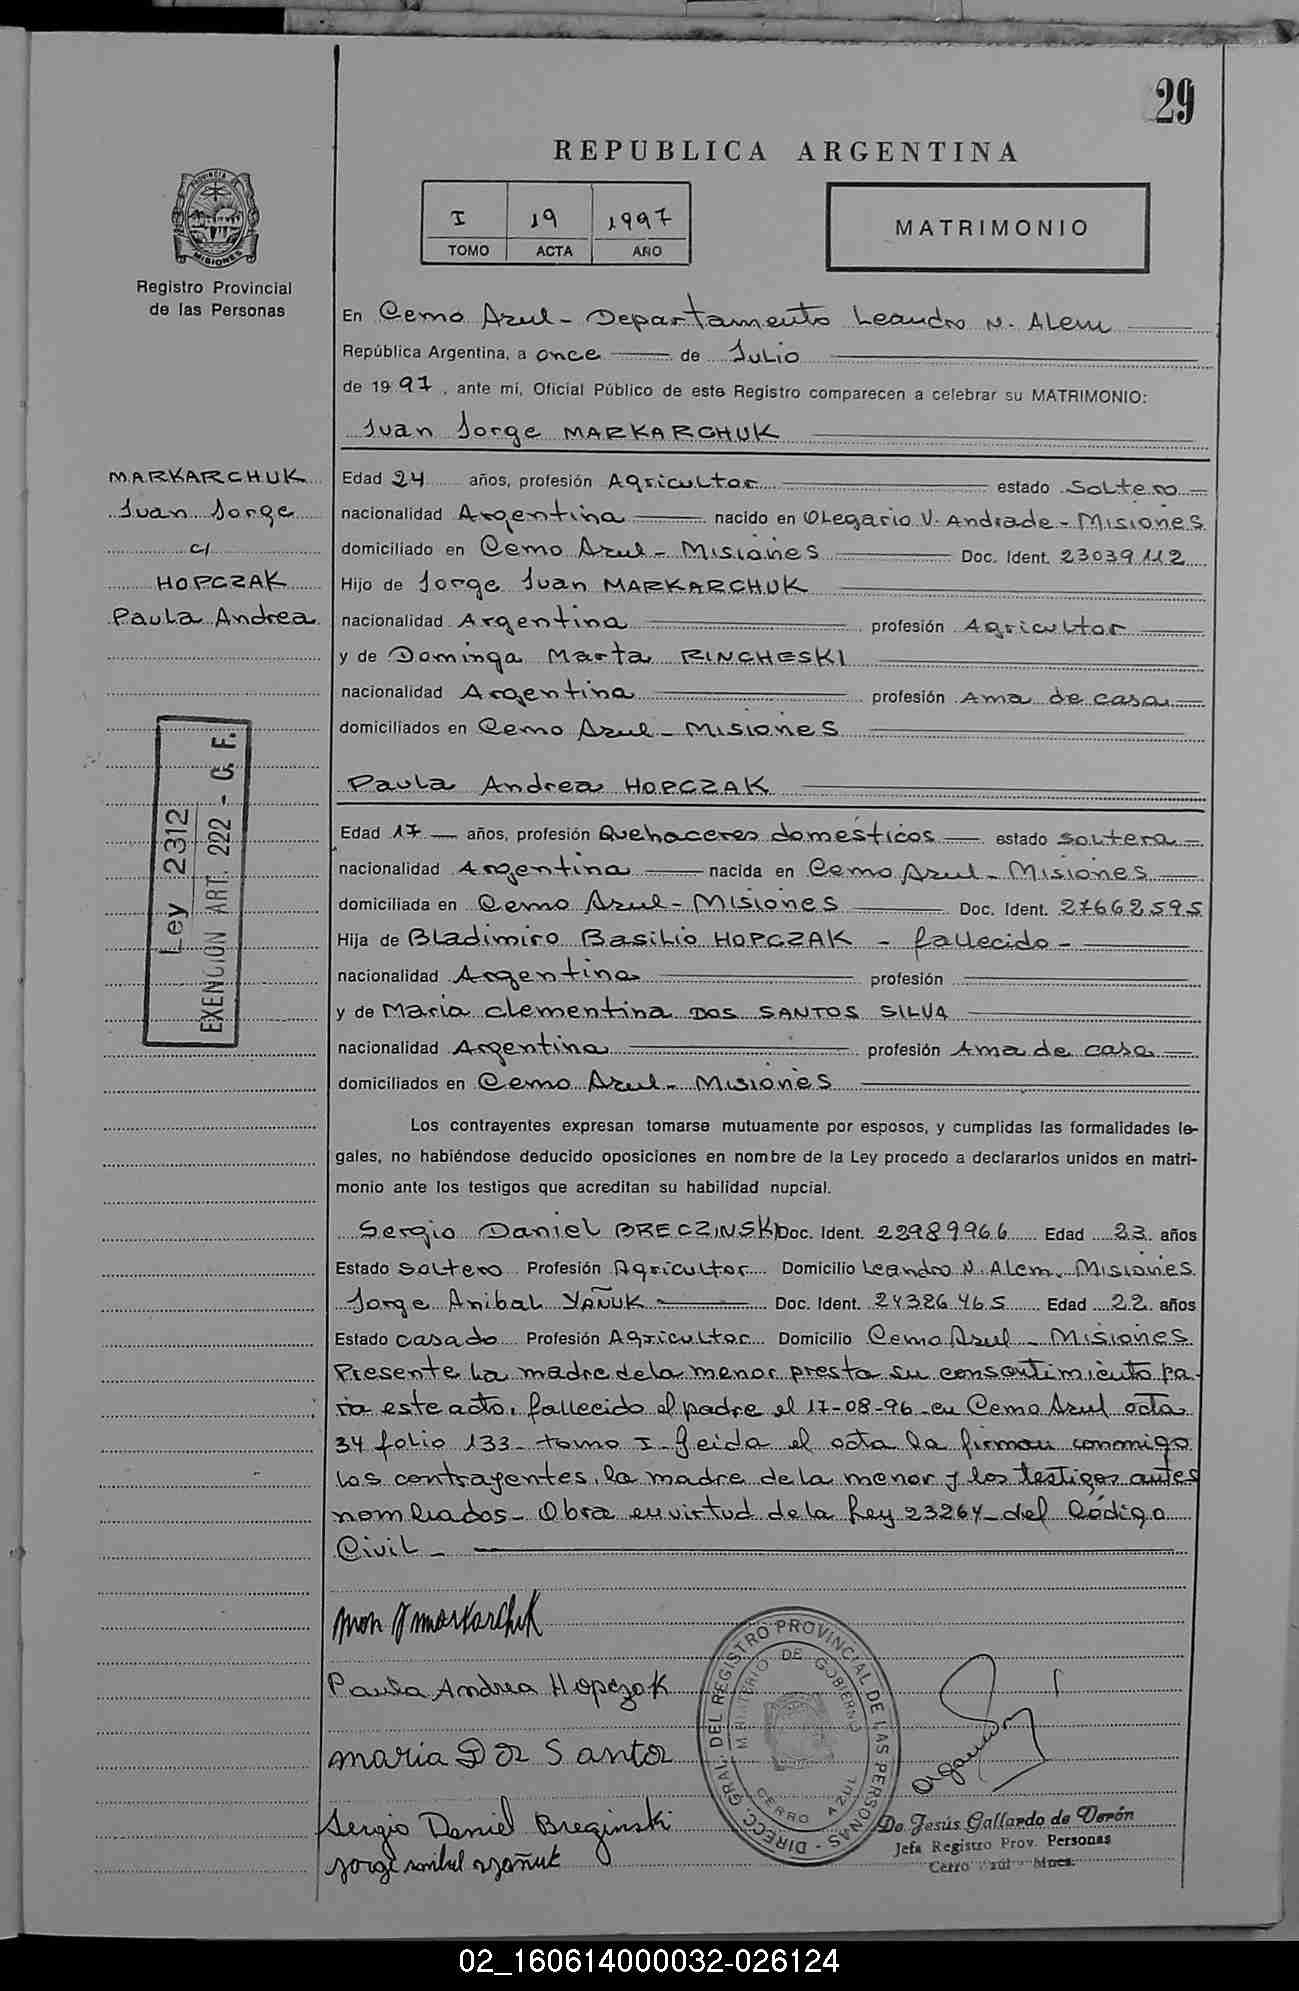 29
REPUBLICA ARGENTINA
I 19 1997
TOMO ACTA AÑO
MATRIMONIO
PROVINCIA DE
MISIONES
Registro Provincial
de las Personas
En Cerro Azul - Departamento Leandro N. Alem
República Argentina, a once de Julio
de 1997, ante mí, Oficial Público de este Registro comparecen a celebrar su MATRIMONIO:
Juan Jorge MARKARCHUK
MARKARCHUK
Juan Jorge
c/
HOPCZAK
Paula Andrea
Ley 2312
EXENCION ART. 222 - C. F.
Edad 24 años, profesión Agricultor estado Soltero
nacionalidad Argentina nacido en Olegario V. Andrade - Misiones
domiciliado en Cerro Azul - Misiones Doc. Ident. 23039112
Hijo de Jorge Juan MARKARCHUK
nacionalidad Argentina profesión Agricultor
y de Dominga Marta RINCHESKI
nacionalidad Argentina profesión Ama de casa
domiciliados en Cerro Azul - Misiones
Paula Andrea HOPCZAK
Edad 17 años, profesión Quehaceres domésticos estado soltera
nacionalidad Argentina nacida en Cerro Azul - Misiones
domiciliada en Cerro Azul - Misiones Doc. Ident. 27662595
Hija de Bladimiro Basilio HOPCZAK - fallecido -
nacionalidad Argentina profesión
y de Maria Clementina DOS SANTOS SILVA
nacionalidad Argentina profesión Ama de casa
domiciliados en Cerro Azul - Misiones
Los contrayentes expresan tomarse mutuamente por esposos, y cumplidas las formalidades le-
gales, no habiéndose deducido oposiciones en nombre de la Ley procedo a declararlos unidos en matri-
monio ante los testigos que acreditan su habilidad nupcial.
Sergio Daniel BRECZINSKI Doc. Ident. 22989966 Edad 23 años
Estado Soltero Profesión Agricultor Domicilio Leandro N. Alem. Misiones
Jorge Anibal YAÑUK Doc. Ident. 24326465 Edad 22 años
Estado casado Profesión Agricultor Domicilio Cerro Azul - Misiones
Presente la madre de la menor presta su consentimiento pa-
ra este acto, fallecido el padre el 17-08-96 en Cerro Azul acta
34 folio 133 - tomo I - Leida el acta la firman conmigo
los contrayentes, la madre de la menor y los testigos antes
nombrados - Obra en virtud de la Ley 23264 - del Código
Civil -
Paula Andrea Hopczak
maria Dos Santos
Sergio Daniel Breginski
Jorge anibal yañuk
DIRECC. GRAL. DEL REGISTRO PROVINCIAL DE LAS PERSONAS -
MINISTERIO DE GOBIERNO
CERRO AZUL
De Jesús Gallardo de Verón
Jefa Registro Prov. Personas
Cerro Azúl - Mnes.
02_160614000032-026124